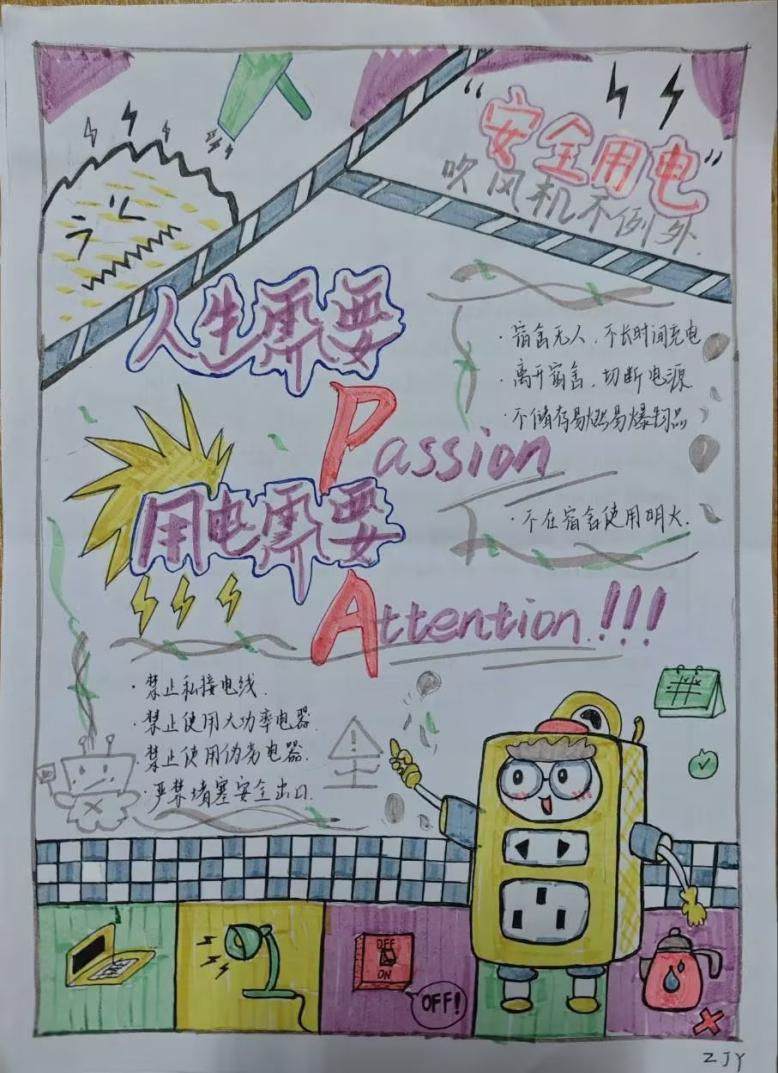 “安全用电”
吹风机不例外.
人生需要
Passion
·宿舍无人，不长时间充电
·离开宿舍，切断电源
·不储存易燃易爆物品
用电需要
·不在宿舍使用明火.
Attention!!!
·禁止私接电线.
·禁止使用大功率电器.
·禁止使用伪劣电器.
·严禁堵塞安全出口.
!
OFF
ON
OFF!
ZJY